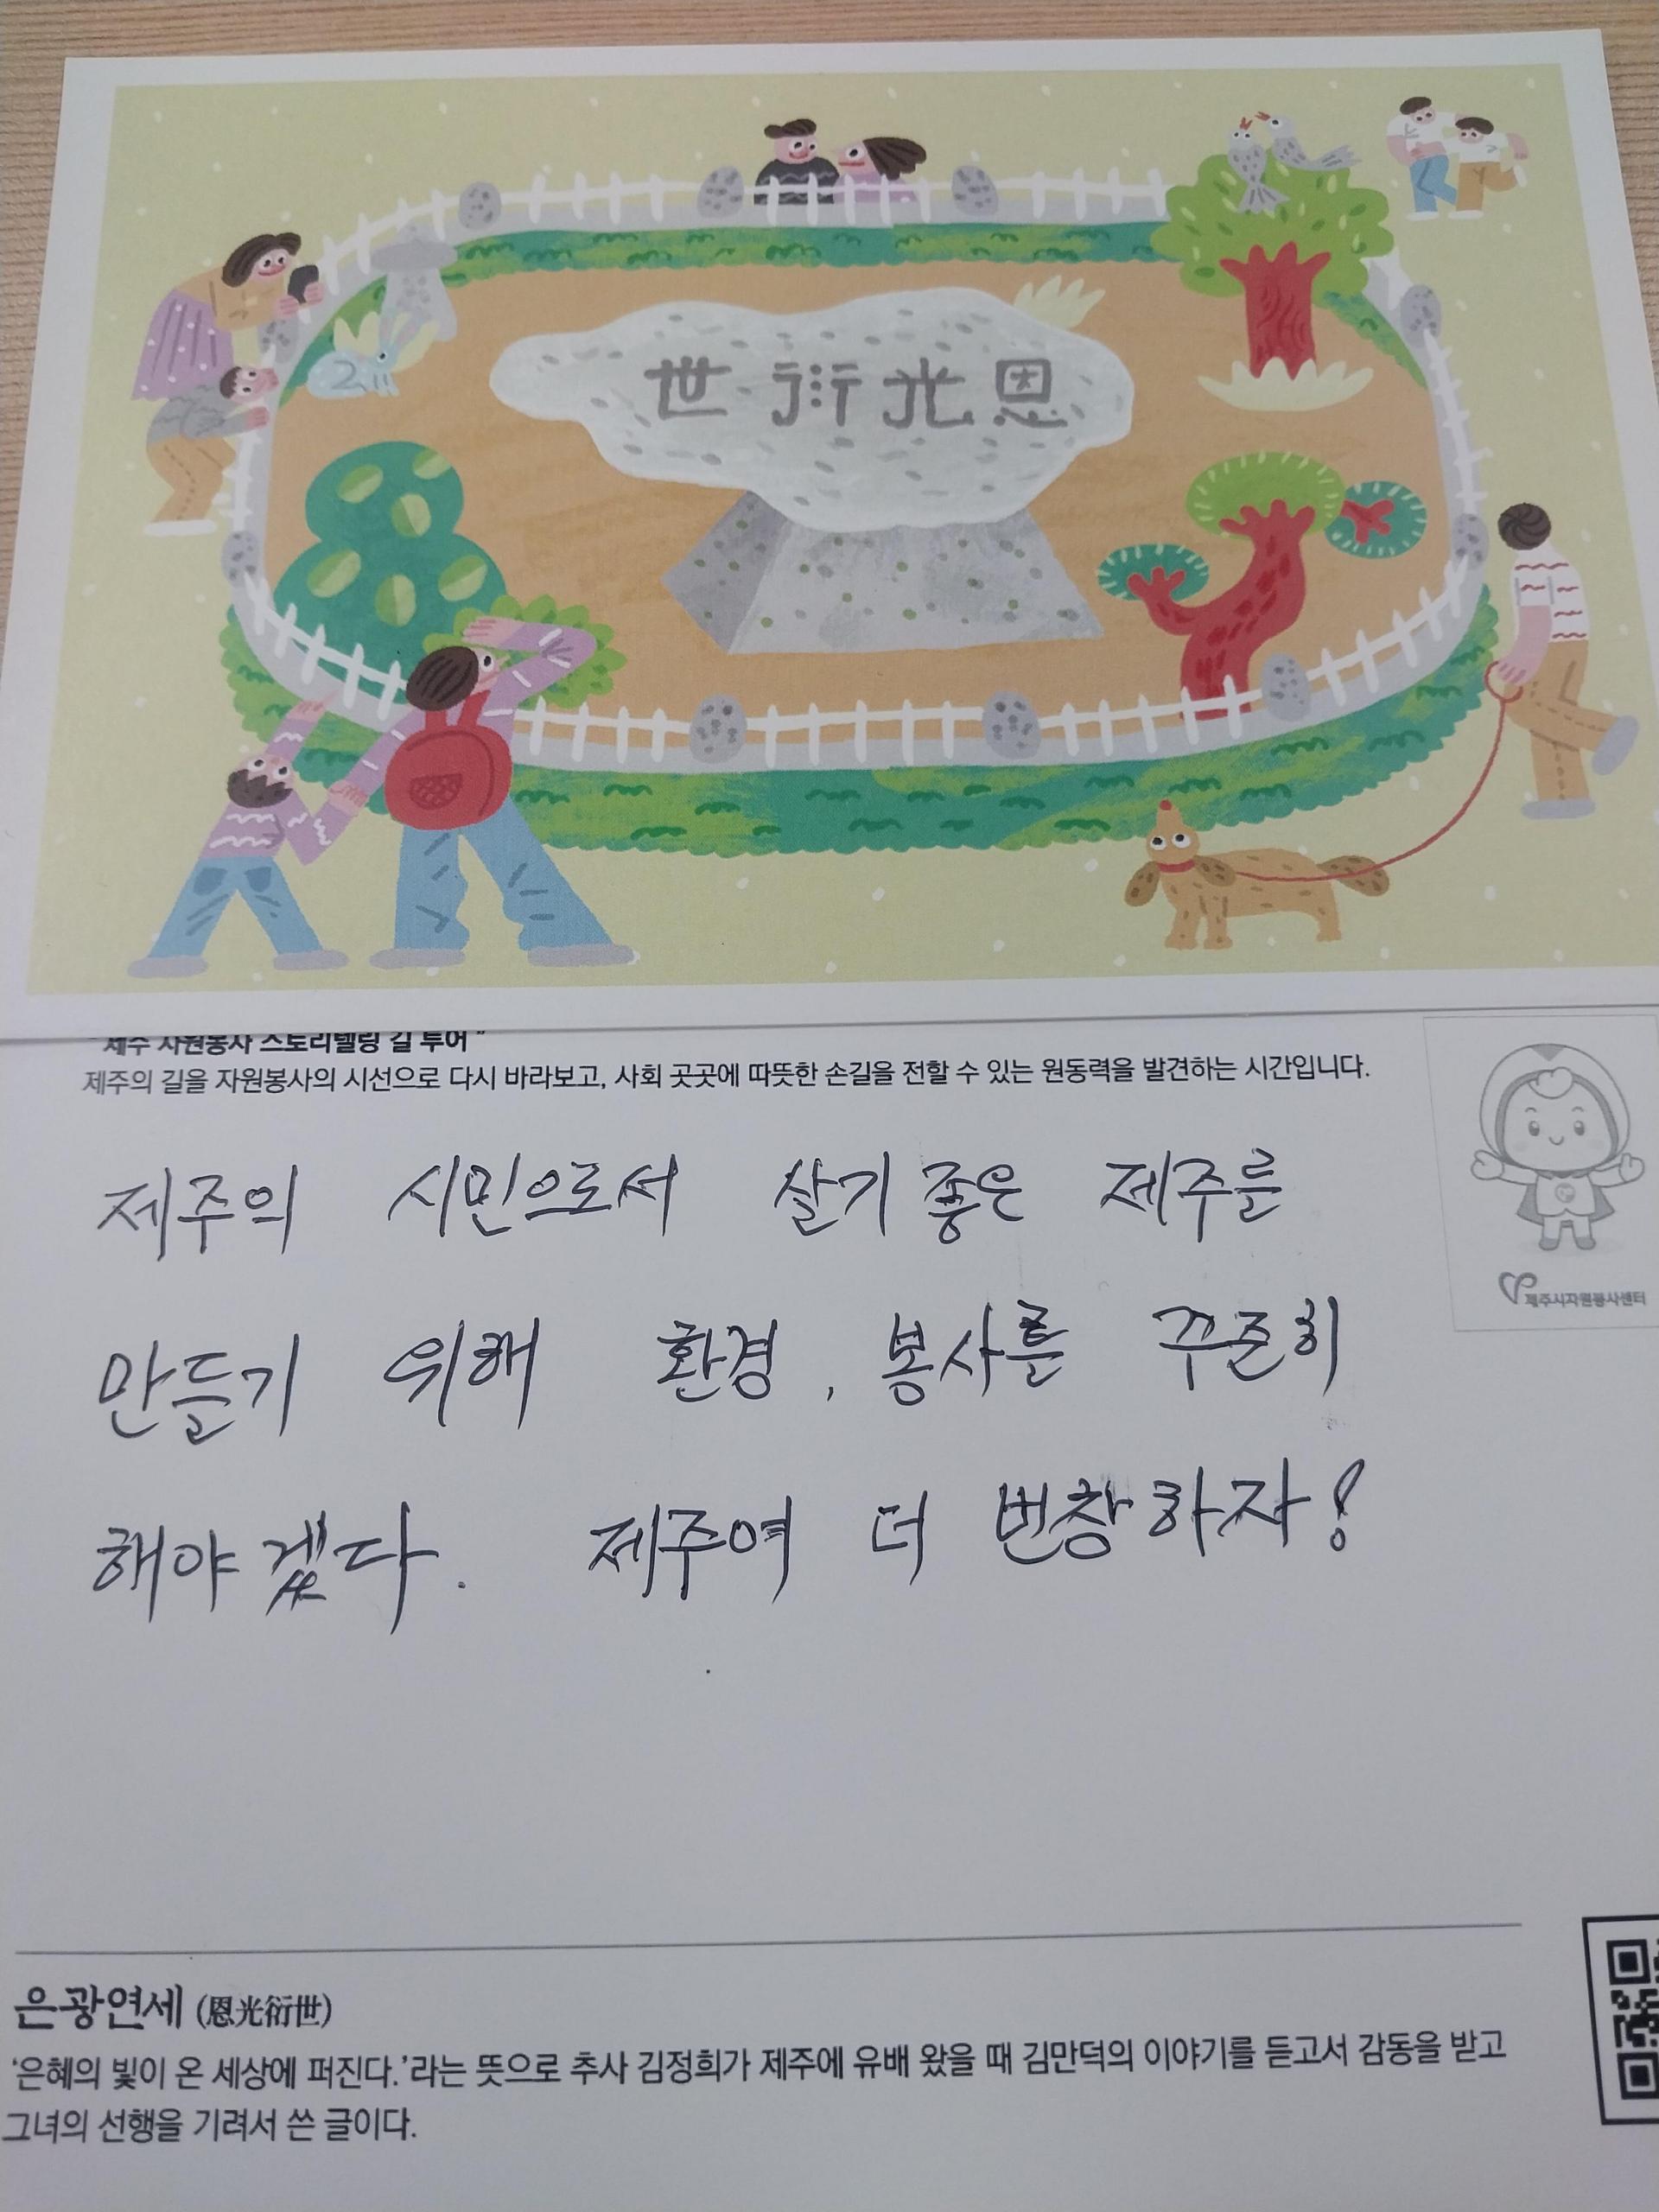 世衍光恩
"제주 자원봉사 스토리텔링 길 투어"
제주의 길을 자원봉사의 시선으로 다시 바라보고, 사회 곳곳에 따뜻한 손길을 전할 수 있는 원동력을 발견하는 시간입니다.
제주시자원봉사센터
제주의 시민으로서 살기 좋은 제주를
만들기 위해 환경, 봉사를 꾸준히
해야겠다. 제주여 더 번창하자!
은광연세 (恩光衍世)
'은혜의 빛이 온 세상에 퍼진다.'라는 뜻으로 추사 김정희가 제주에 유배 왔을 때 김만덕의 이야기를 듣고서 감동을 받고
그녀의 선행을 기려서 쓴 글이다.